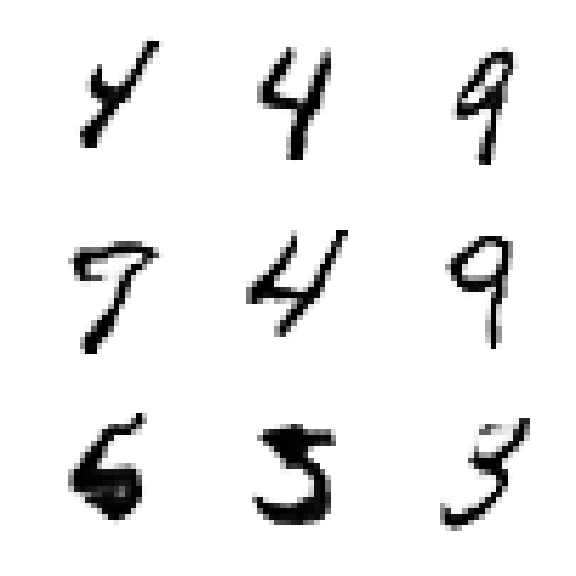 4 4 9
7 4 9
6 5 3